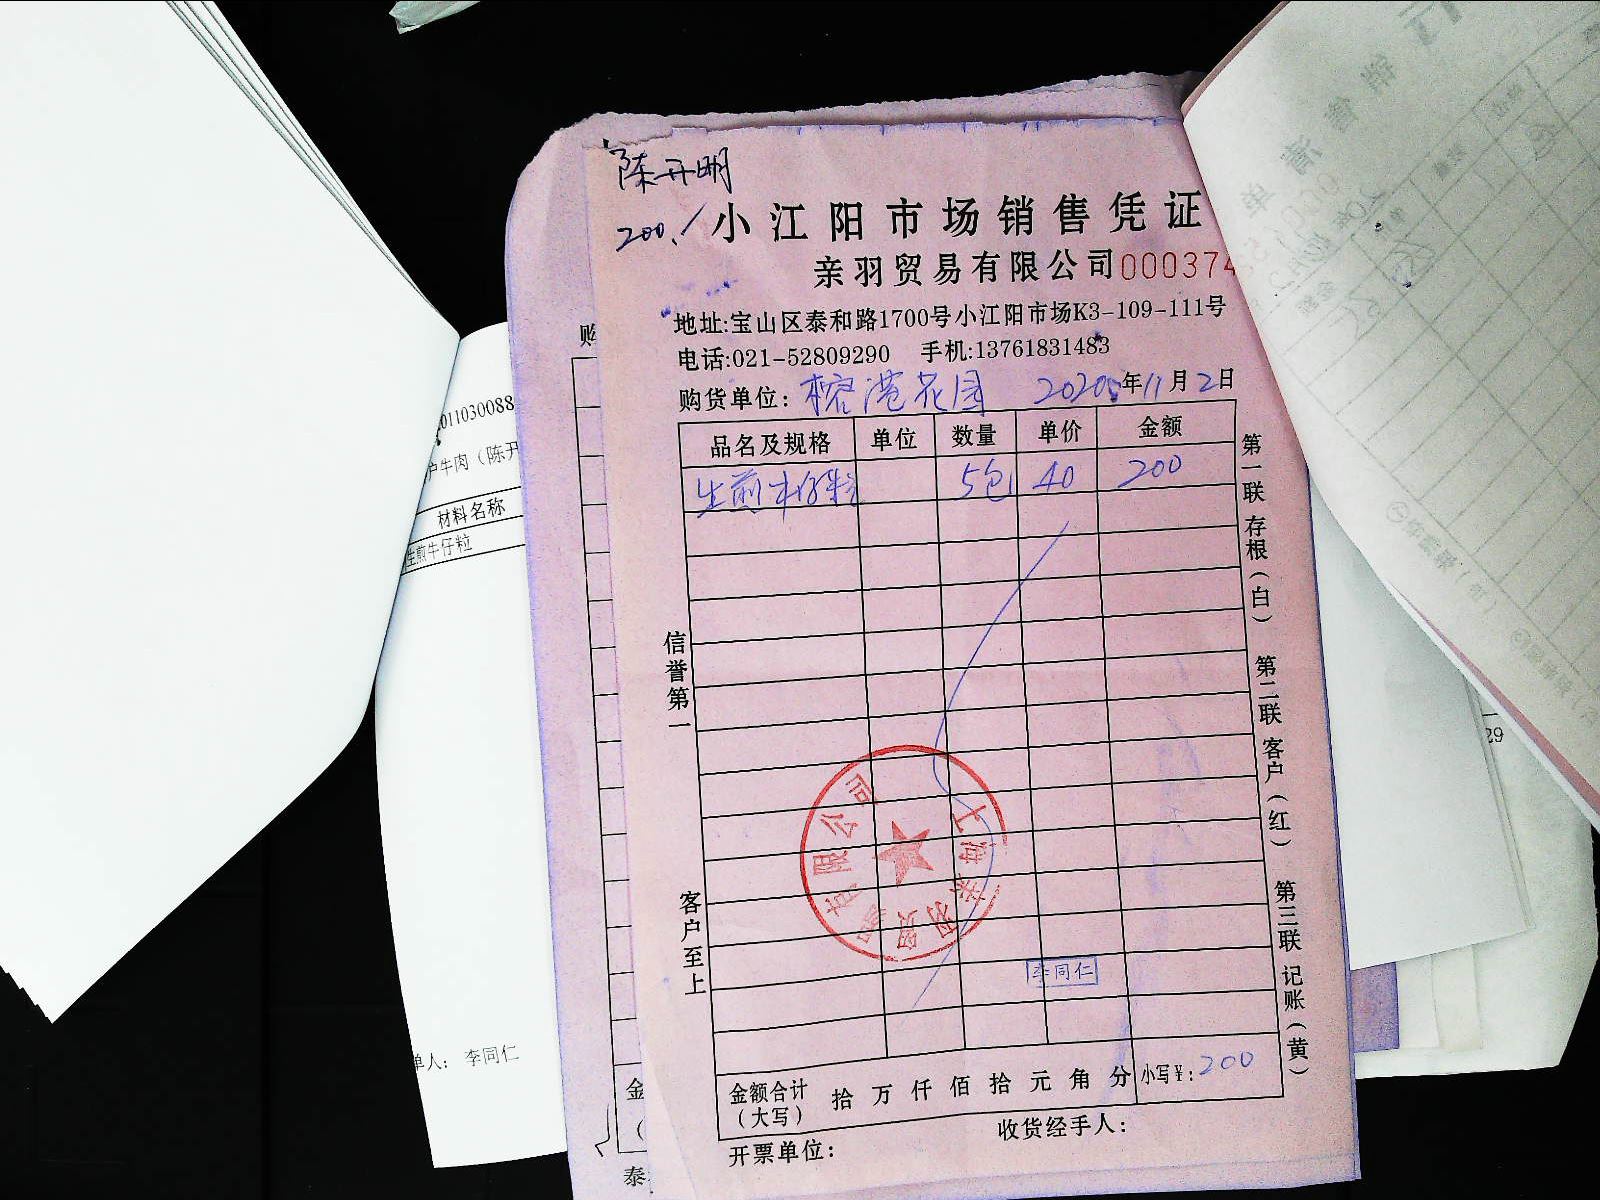 陈开明
200./
小江阳市场销售凭证
亲羽贸易有限公司 000374
地址:宝山区泰和路1700号小江阳市场K3-109-111号
电话:021-52809290 手机:13761831483
购货单位: 榕港花园 2020年11月2日
品名及规格 单位 数量 单价 金额
生煎牛仔粒 5包 40 200
信誉第一
客户至上
第一联 存根(白) 第二联 客户(红) 第三联 记账(黄)
李同仁
金额合计(大写) 拾 万 仟 佰 拾 元 角 分 小写¥: 200
开票单位: 收货经手人:
购
金
泰
011030088
户牛肉（陈开
材料名称
生煎牛仔粒
单人: 李同仁
29